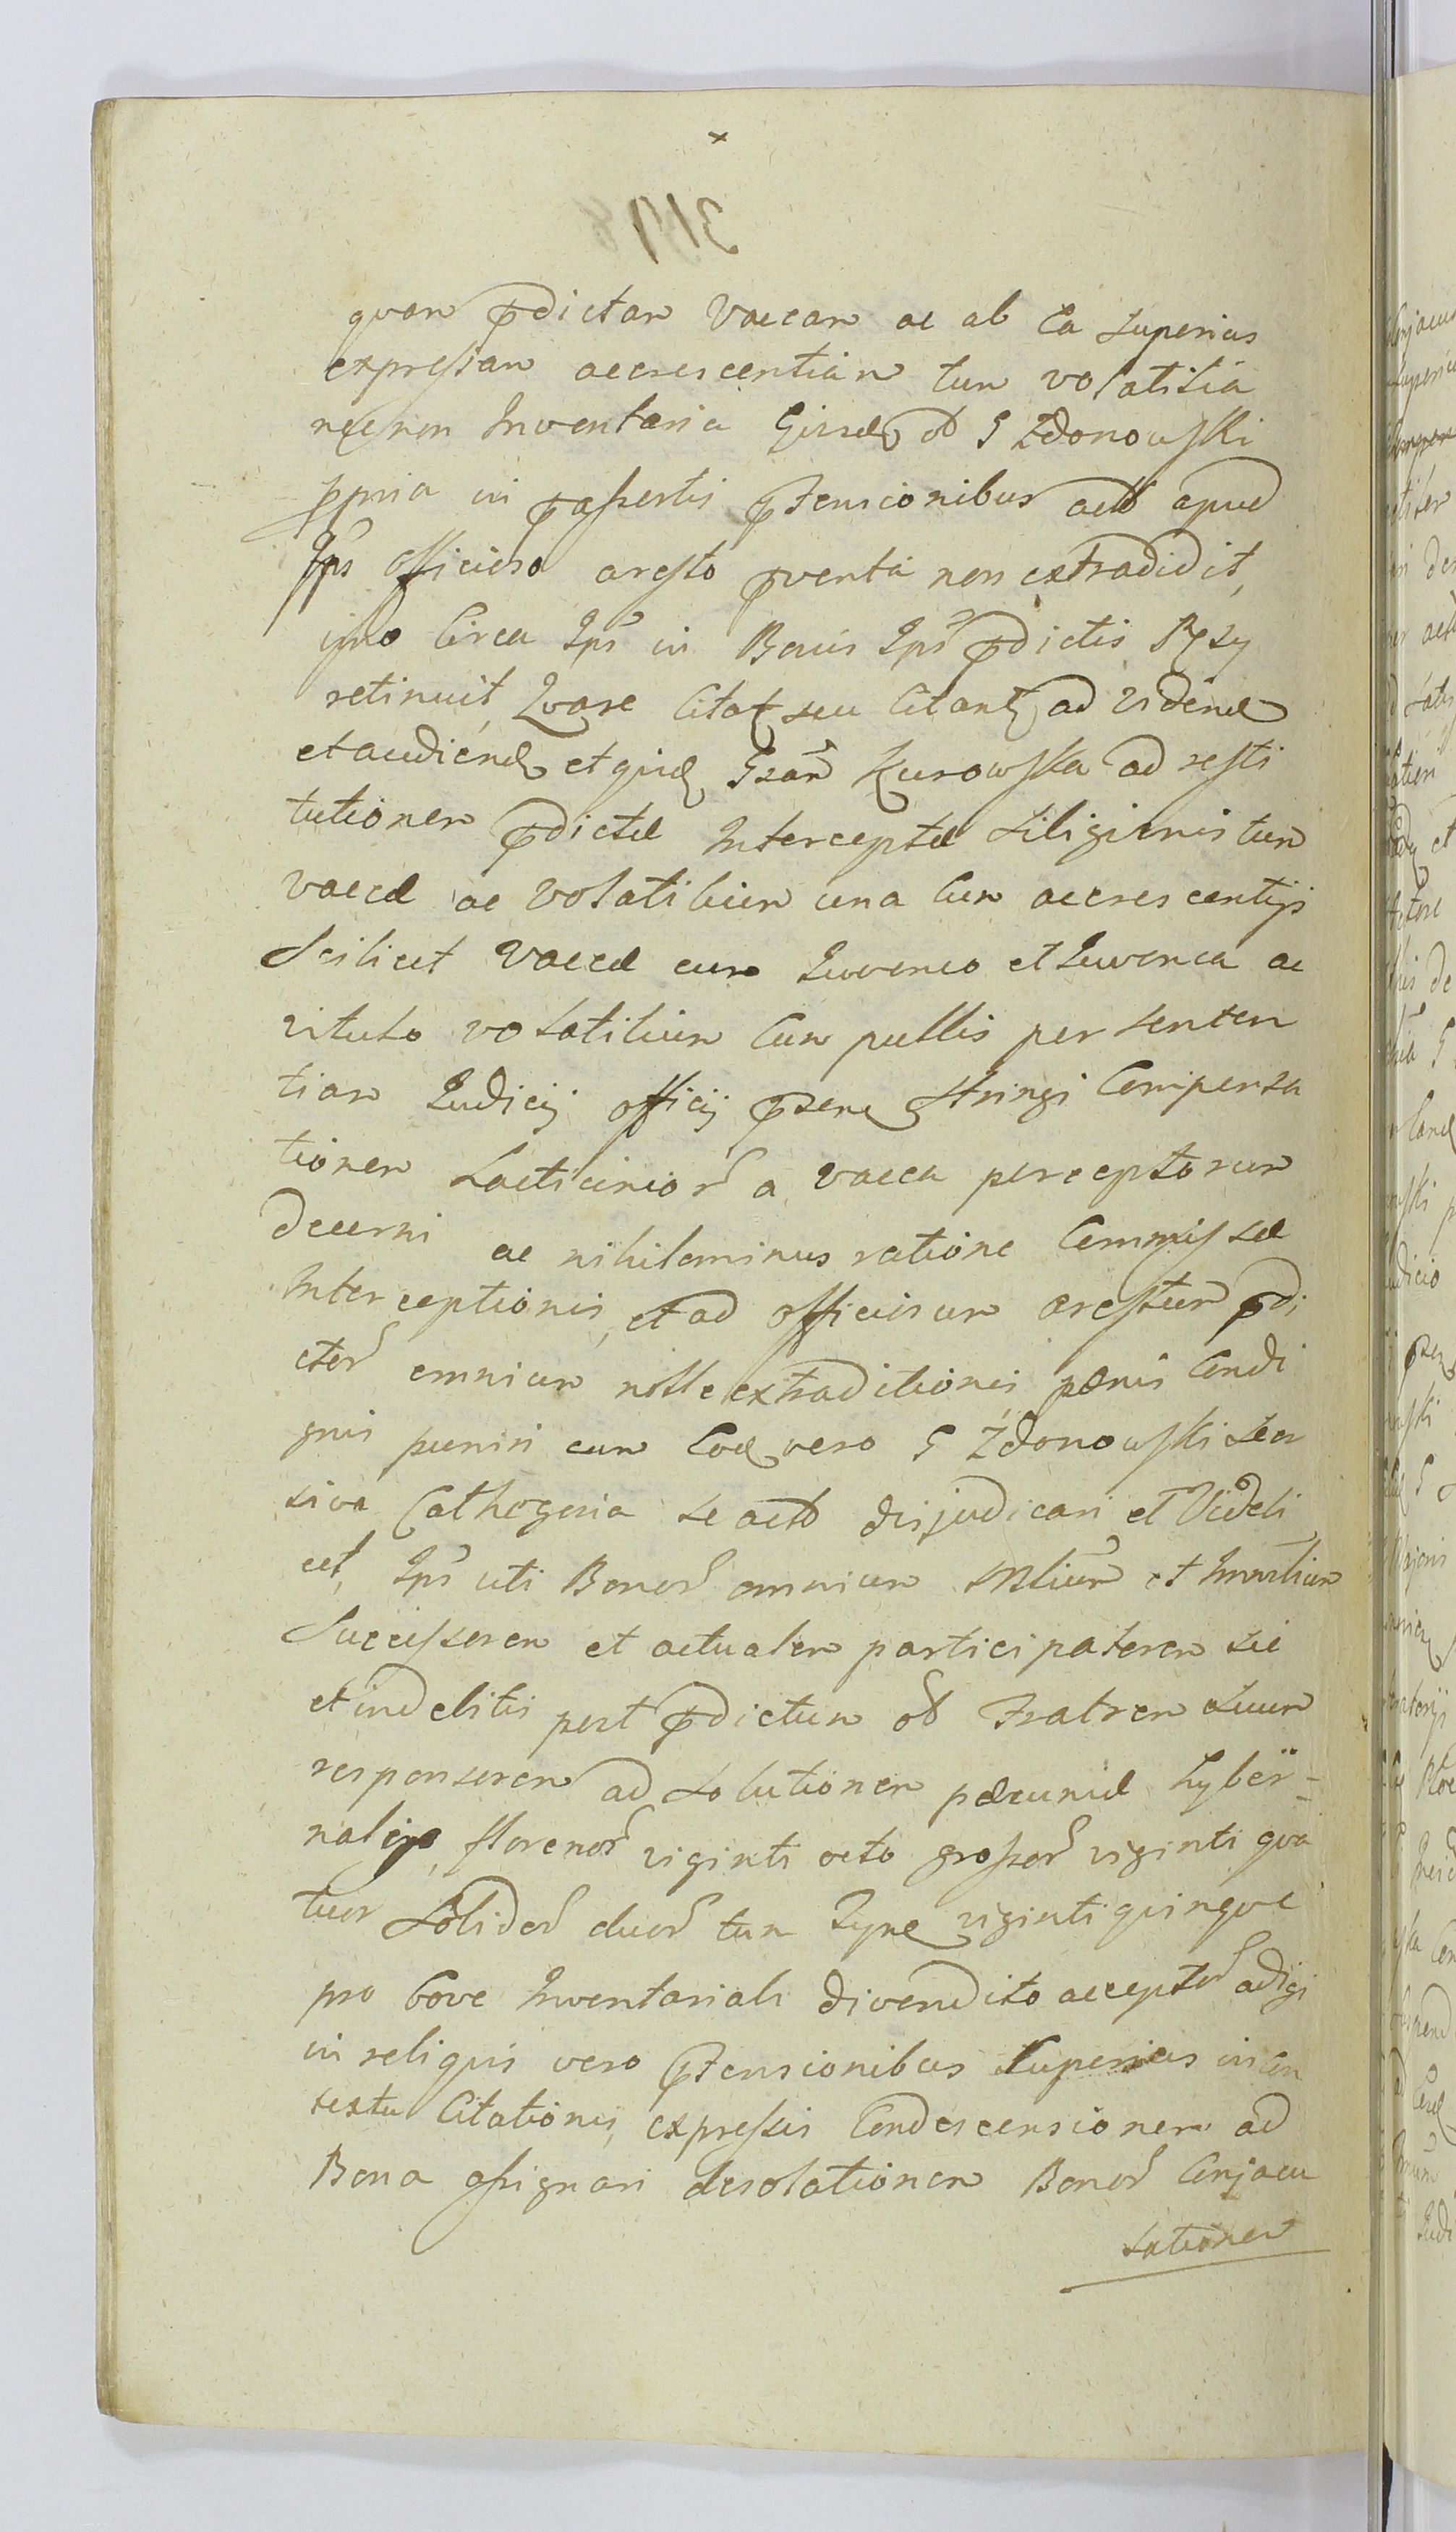 quam pdictam Vaccam ac ab Ea Superius
expressam accrescentiam tum volatilia
necnon Inventaria ejusd G Zdonowski
ppria in passertis ptensionibus acto apud
Ips officioso aresto pventa non extradidit,
imo Circa Ips in Bonis Ips pdictis Rzy
retinuit, Quare Citat seu Citant ad videnđ
et audienđ et quid Gsam Kurowska ad resti
tutionem pdictæ Interceptæ Siliginis tum
vaccæ ac volatilium una Cum accrescentijs
Scilicet Vaccæ cum Juvenco et Juvenca ac
vitulo volatilium Cum pullis per senten
tiam Judicij officij psen stringi Compensa
tionem Lacticinior a vacca perceptorum
decerni ac nihilominus ratione Commissæ
Interceptionis, et ad officiosum arestum pdi
ctor omnium nolle extraditionis pænis Condi
gnis puniri cum Eod vero G Zdonowski seor
siva Cathegoria se acto disjudicari et Videli
cet, Ips uti Bonor omnium Mblium et Immblium
Successorem et actualem participatorem sic
et in debitis post pdictum Fratrem Suum
responsorem ad Solutionem pæcuniæ hyber=
nalis, florenor viginti octo grossor viginti qua
tuor Solidor duor tum Tyne viginti quinque
pro bove Inventariali divendito acceptor adigi
in reliquis vero ptensionibus Superius in con
textu Citationis, expressis Condescensionem ad
Bona assignari desolationem Bonor Conjacu
lationem